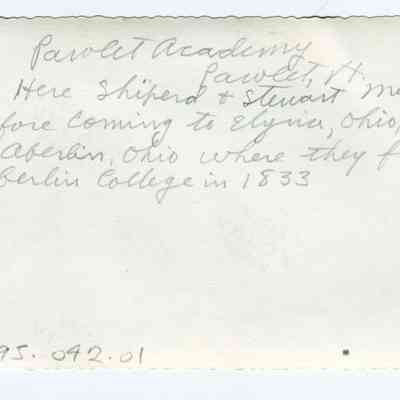 Pawlet Academy
Pawlet, Vt.
Here Shiperd & Stewart me
fore coming to Elyria, Ohio,
Oberlin, Ohio where they f
berlin College in 1833
95.042.01